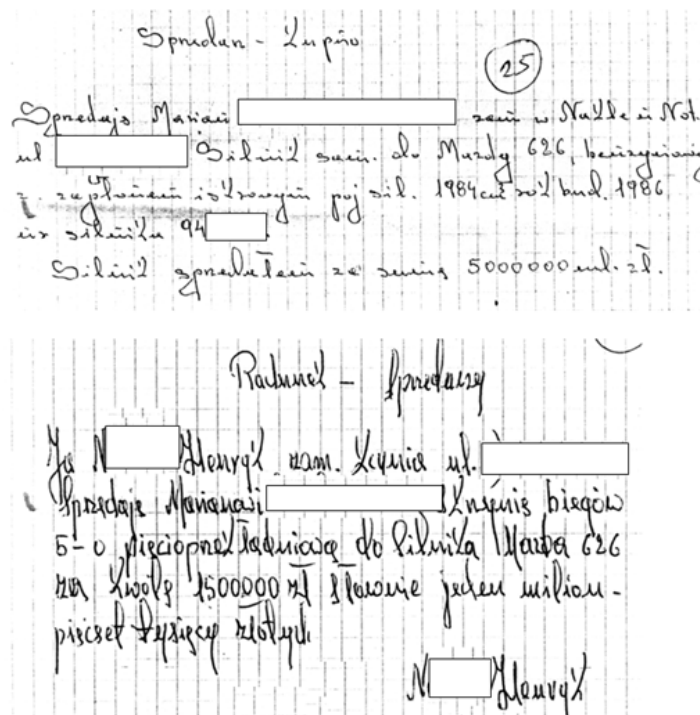 Sprzedarz - Kupno
25
Sprzedaję Marian zam w Nakle n Not.
ul Silnik sam. do Mazdy 626, benzynowy
z zapłonem iskrowym poj sil. 1984 cm rok bud. 1986
nr silnika 94
Silnik sprzedałem za sumę 5000000 mil. zł.
Rachunek - Sprzedaży
Ja N Henryk zam. Kcynia ul.
Sprzedaję Marianowi Skrzynię biegów
5-o pięcioprzekładniową do Silnika Mazda 626
za kwotę 1500000 zł słownie jeden milion-
pięćset tysięcy złotych.
N Henryk